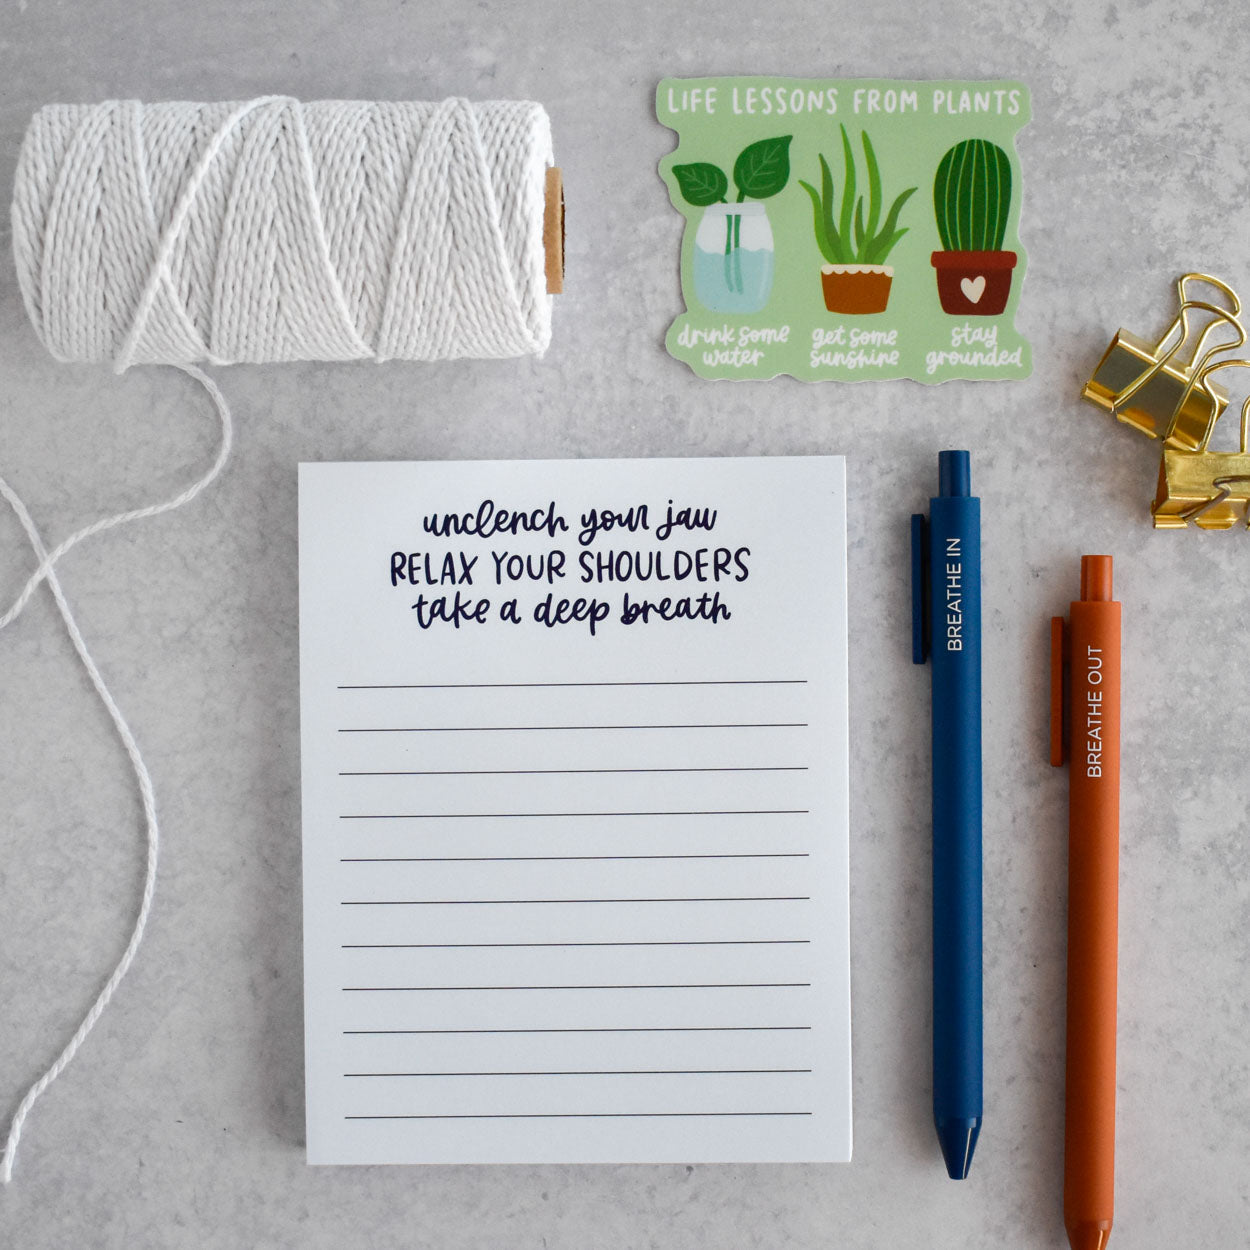 LIFE LESSONS FROM PLANTS
drink some
water
get some
sunshine
stay
grounded
unclench your jaw
RELAX YOUR SHOULDERS
take a deep breath
BREATHE IN
BREATHE OUT